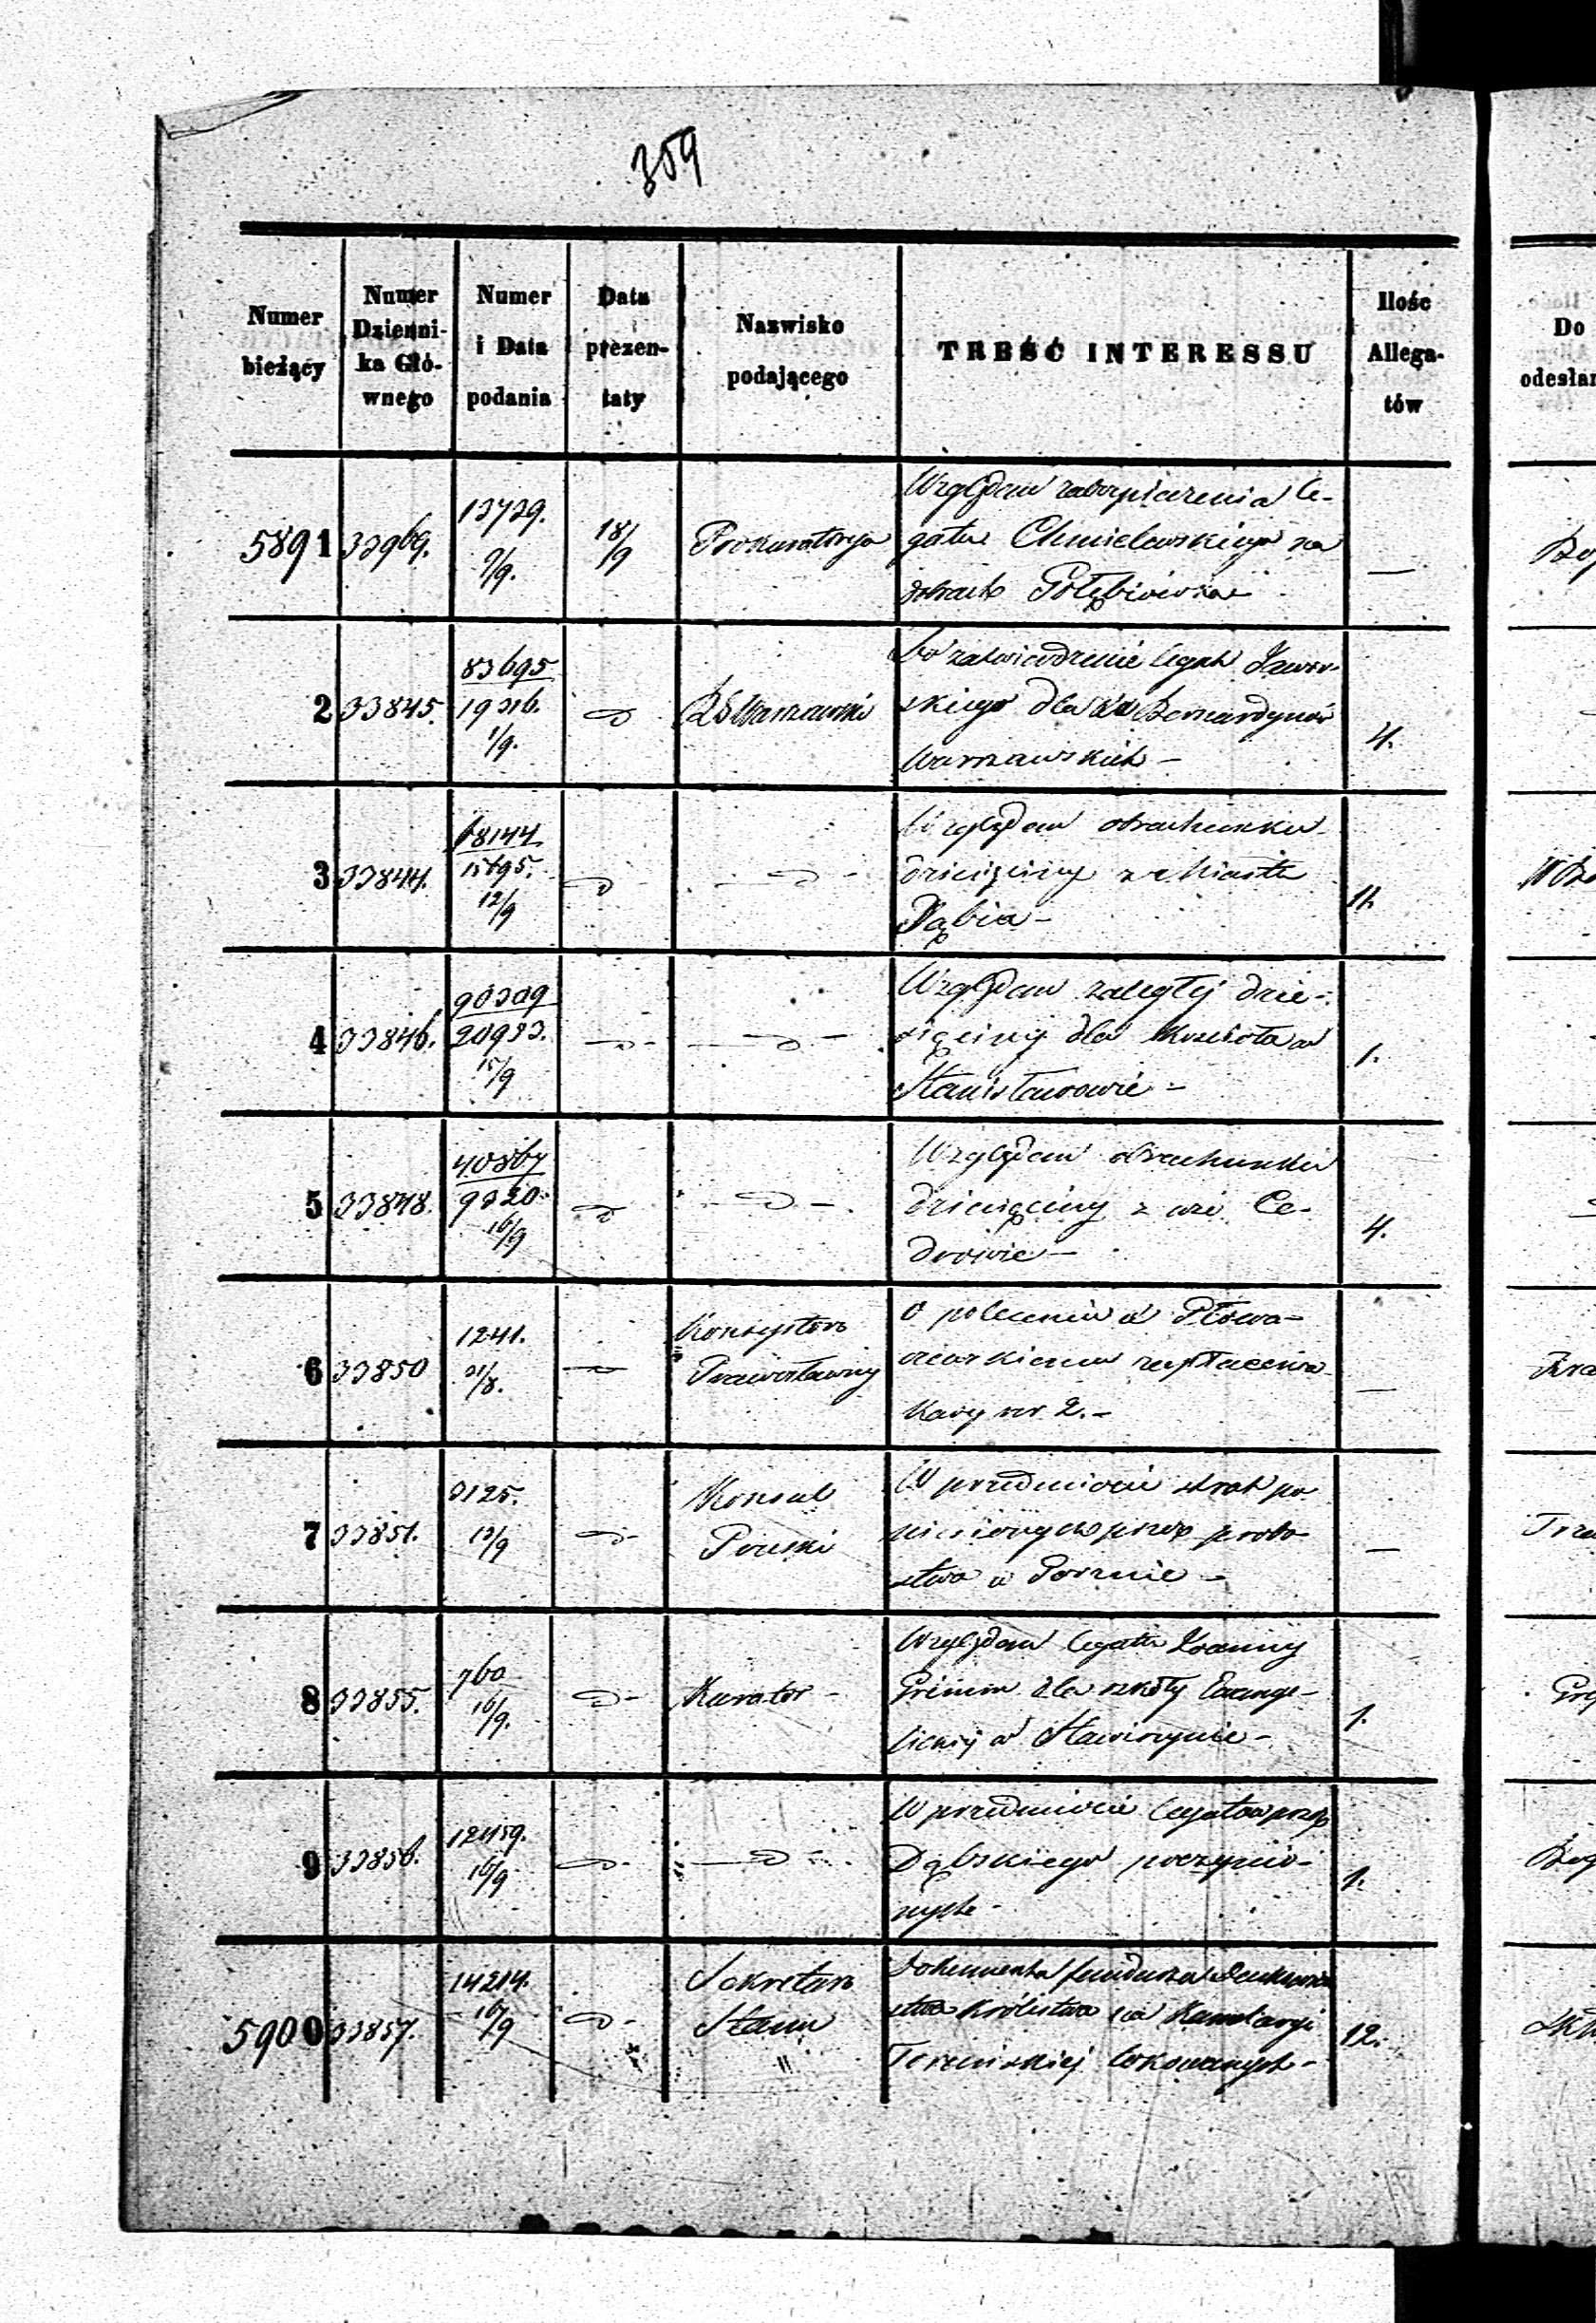 359
Numer
bieżący
Numer
Dzienni-
ka Głó-
wnego
Numer
i Data
podania
Data
prezen-
taty
Nazwisko
podającego
TREŚĆ INTERESSU
Ilość
Allega-
tów
Do
odesłan
5891 33969. 13739. 9/9. 18/9 Prokuratorya
Względem zabezpieczenia le-
gatu Chmielewskiego na
dobrach —
2 33845. 83695 19316. 1/9. D RG Warszawski
O zatwierdzenie legatu Jawor-
skiego dla XX Bernardynów
Warszawskich - 4.
3 33844. 68144 15695. 12/9 D — D -
Względem obrachunku
dziesięciny z miasta
Dąbia - 11.
4 33846. 90309 20933. 15/9 - D - — D -
Względem zaległej dzie-
sięciny dla Kościoła w
Stanisławowie - 1.
5 33848. 40867 9320. 16/9 D - D -
Względem obrachunku
dziesięciny z wsi Ce-
drowie - 4.
6 33850 1241. 31/8. Konsystorz
Prawosławny
O polecenie
zapłacenia —
Kary rsr 2. -
7 33851. 3125. 12/9 D - Konsul
Pruski
W przedmiocie strat po
niesionych przez probo-
stwo w — —
8 33855. 760 16/9. D - Kurator -
Względem legatu Joanny
Grimm dla szkoły Ewange-
lickiej w Stawiszynie - 1.
9 33856. 12459. 16/9 D - — D -
W przedmiocie legatów przez
Dąbskiego poczynio-
nych - 1.
5900 33857. 14214. 16/9 D - Sekretarz
Stanu
Dokumenta funduszu Duchowień
stwa Królestwa na
lokowanych - 12.